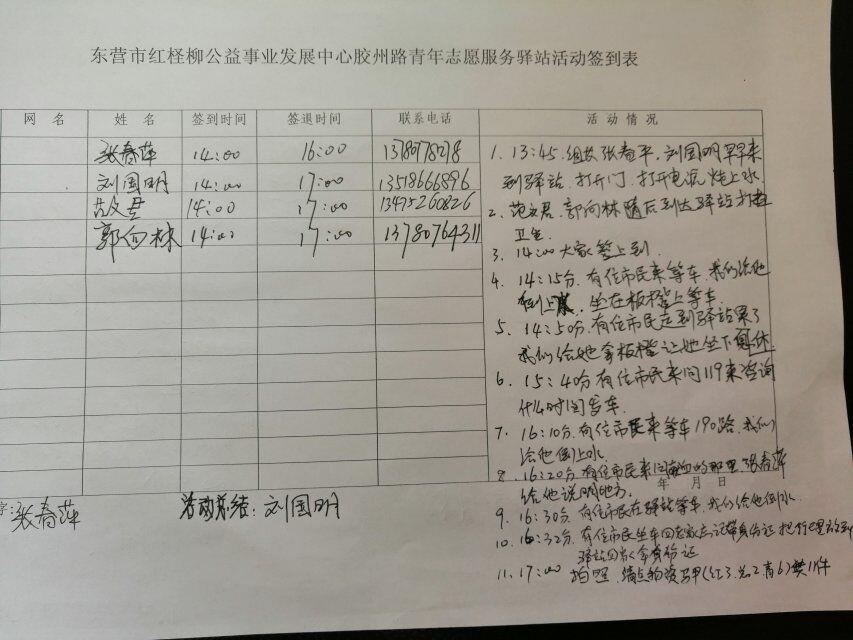 东营市红柽柳公益事业发展中心胶州路青年志愿服务驿站活动签到表
网 名 姓 名 签到时间 签退时间 联系电话 活 动 情 况
张春萍 14:00 16:00
刘国明 14:00 17:00 13518666896
14:00 17:00 13475260826
郭向林 14:00 17:00 13780764311
1. 13:45. 组长张春平, 刘国明早早来
到驿站. 打开门. 打开电源 炖上水.
2. 范文君. 郭向林随后到达驿站打扫
卫生.
3. 14:00 大家签上到.
4. 14:15分. 有位市民来等车. 我们给他
倒上水, 坐在板凳上等车.
5. 14:50分. 有位市民走到驿站累了
我们给她拿板凳让她坐下休
6. 15:40分有位市民来问119来咨询
什么时间发车.
7. 16:10分. 有位市民来等车190路. 我们
给他倒上水
8. 16:20分 有位市民来问 的那里. 张春萍
给他说明地方.
年 月 日
9. 16:30分. 有位市民在驿站等车. 我们给他倒水.
10. 16:32分. 有位市民坐车回老家忘记带身份证 把行理放到
驿站回家拿身份证
11. 17:00 拍照. 清点物资马甲(红3. 兰2 青6)共11件
字: 张春萍 活动总结: 刘国明